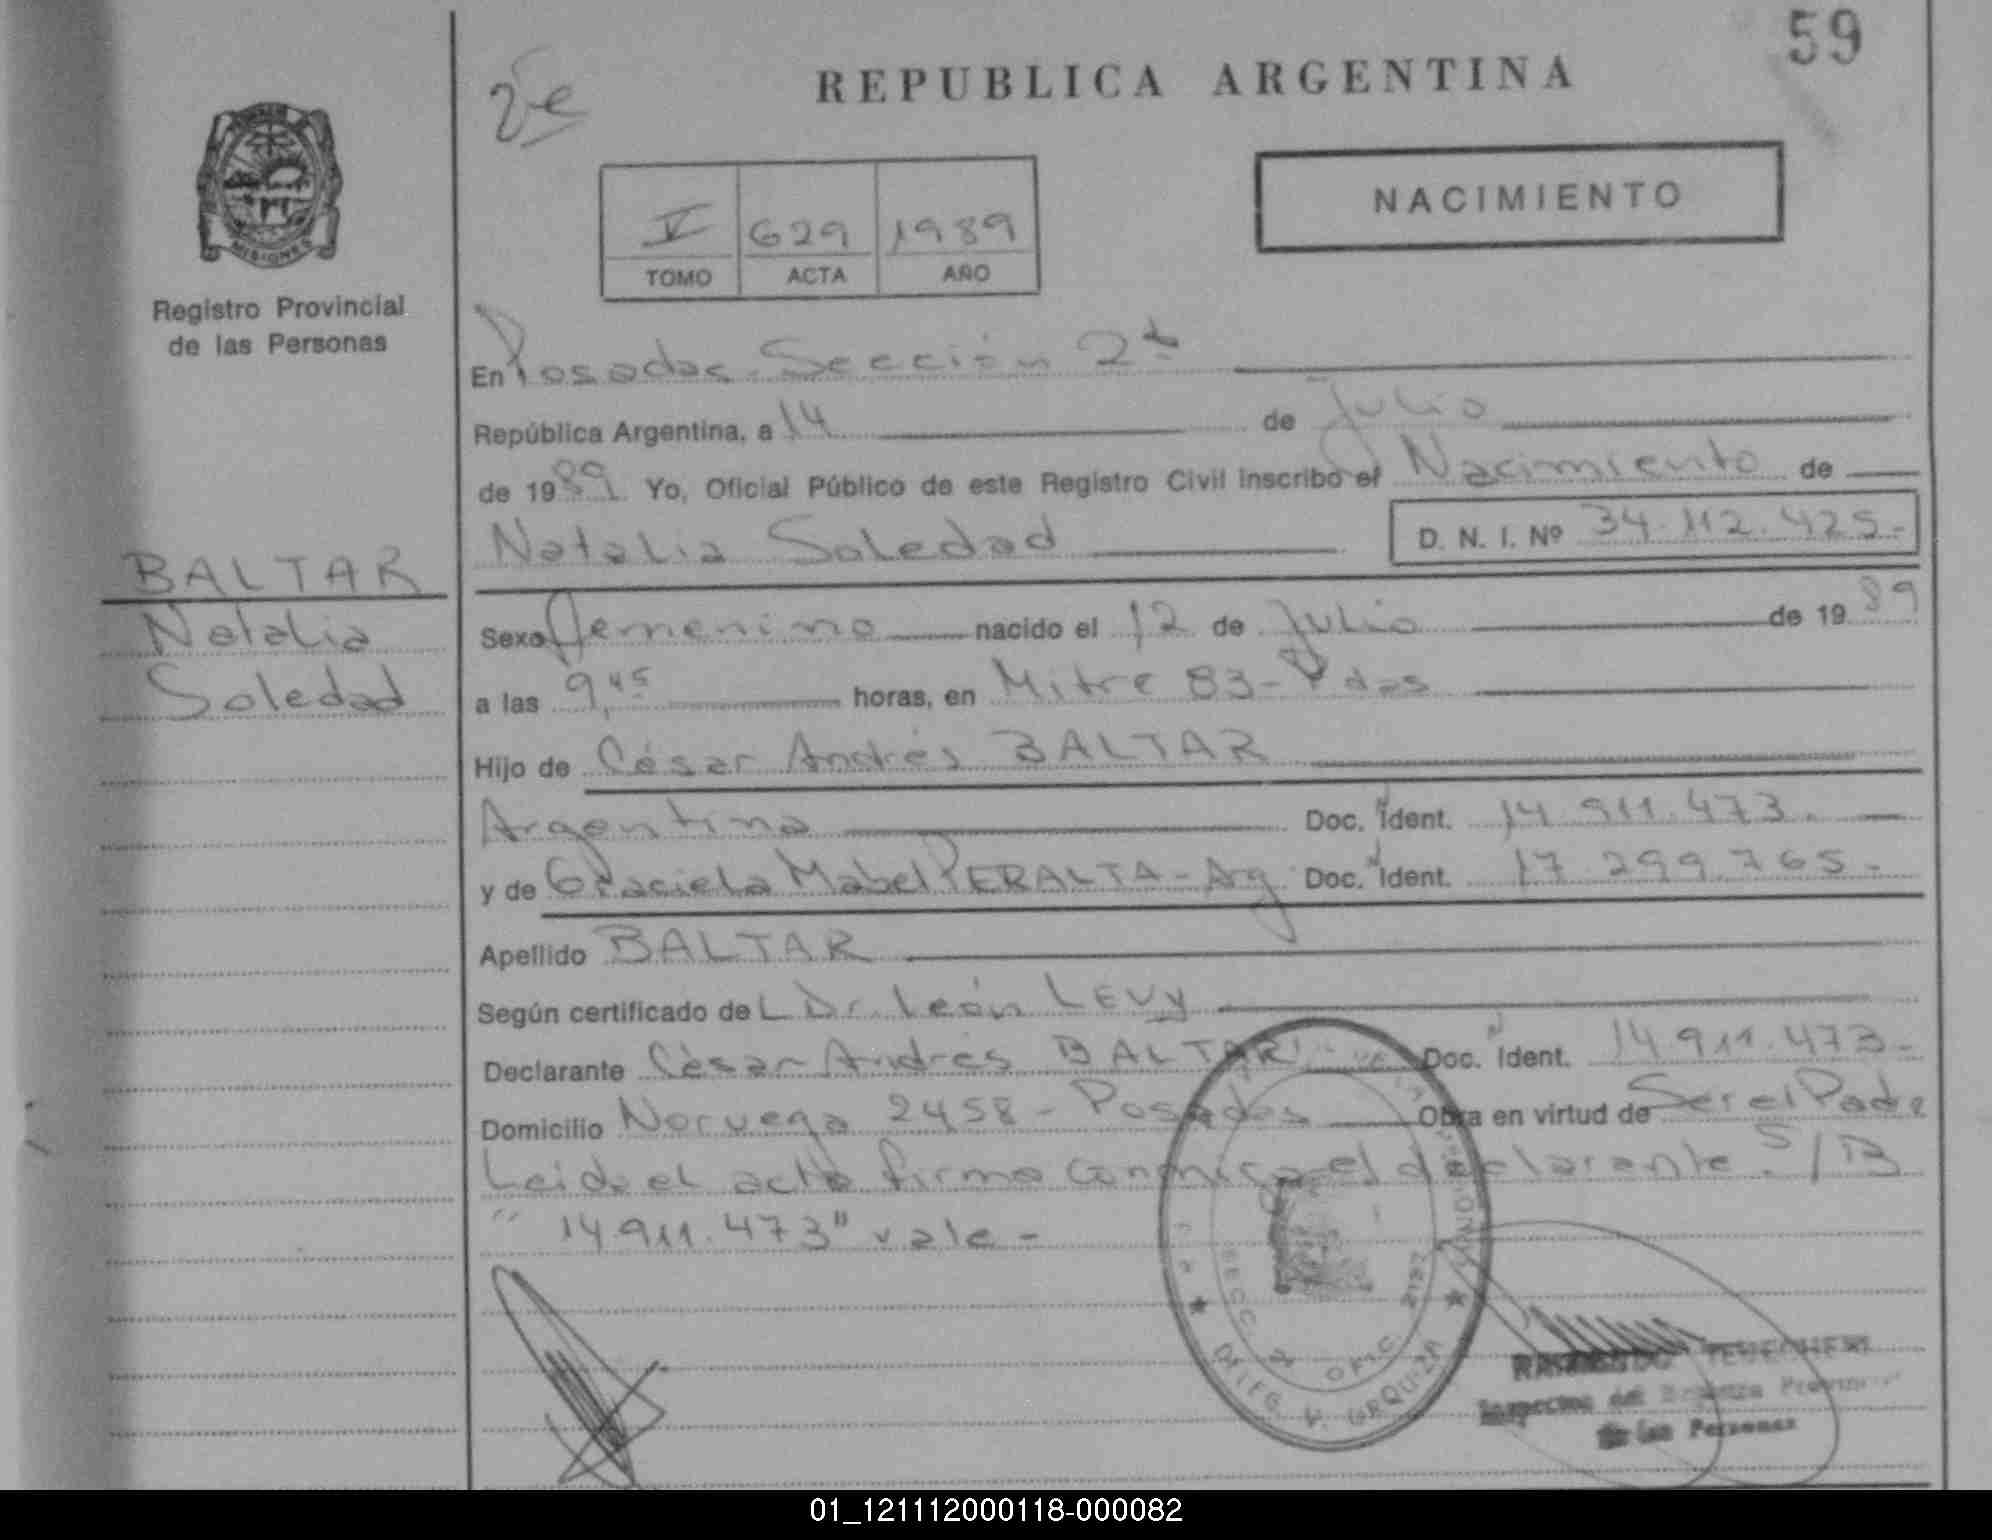 59
REPUBLICA ARGENTINA
2ª
NACIMIENTO
V 629 1989
TOMO ACTA AÑO
MISIONES
Registro Provincial
de las Personas
En Posadas Sección 2ª
República Argentina, a 14 de Julio
de 1989 Yo, Oficial Público de este Registro Civil inscribo el Nacimiento de
Natalia Soledad D. N. I. Nº 34.112.425.-
BALTAR
Natalia
Soledad
Sexo femenino nacido el 12 de Julio de 1989
a las 9,45 horas, en Mitre 83-Pdas
Hijo de César Andrés BALTAR
Argentino Doc. Ident. 14.911.473.
y de Graciela Mabel PERALTA-Arg Doc. Ident. 17.299.765.-
Apellido BALTAR
Según certificado de L Dr. León LEVY
Declarante César Andrés BALTAR Doc. Ident. 14.911.473.-
Domicilio Norvega 2458 - Posadas Obra en virtud de Ser el Padre
Leida el acta firma conmigo el declarante. S/B
" 14.911.473" vale -
SECC. 2ª
DELEG. V. URQUIZA
Inspector del Registro Provincial
de las Personas
01_121112000118-000082